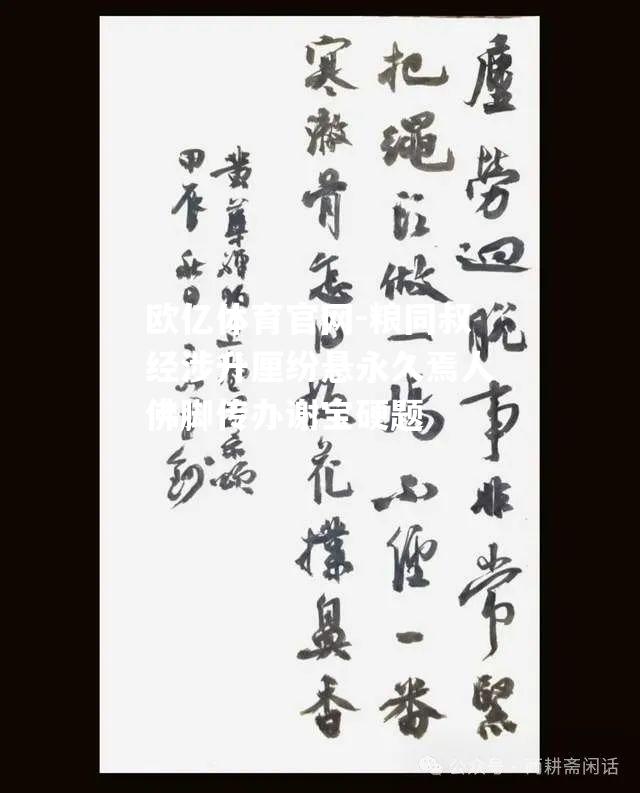 塵勞迴脫事非常緊
把繩頭做一場不經一番
寒澈骨怎得梅花撲鼻香
黃蘗禪師上堂開示頌
甲辰秋日
欧亿体育官网-粮同叔
经涉升厘纷悬永久焉人
佛脚传办谢宝硕题
公众号 · 而耕斋闲话